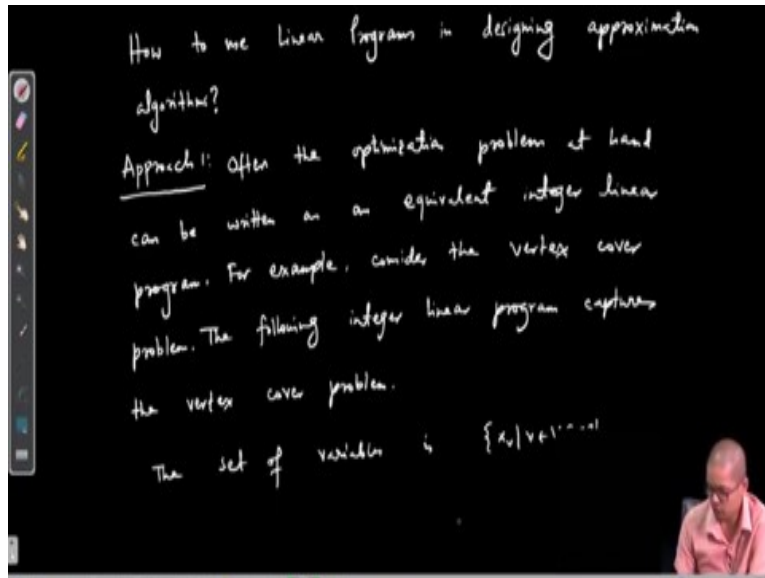 How to use Linear Programs in designing approximation
algorithms?
Approach 1: Often the optimization problem at hand
can be written as an equivalent integer linear
program. For example, consider the vertex cover
problem. The following integer linear program captures
the vertex cover problem.
The set of variables is {x_v | v ∈